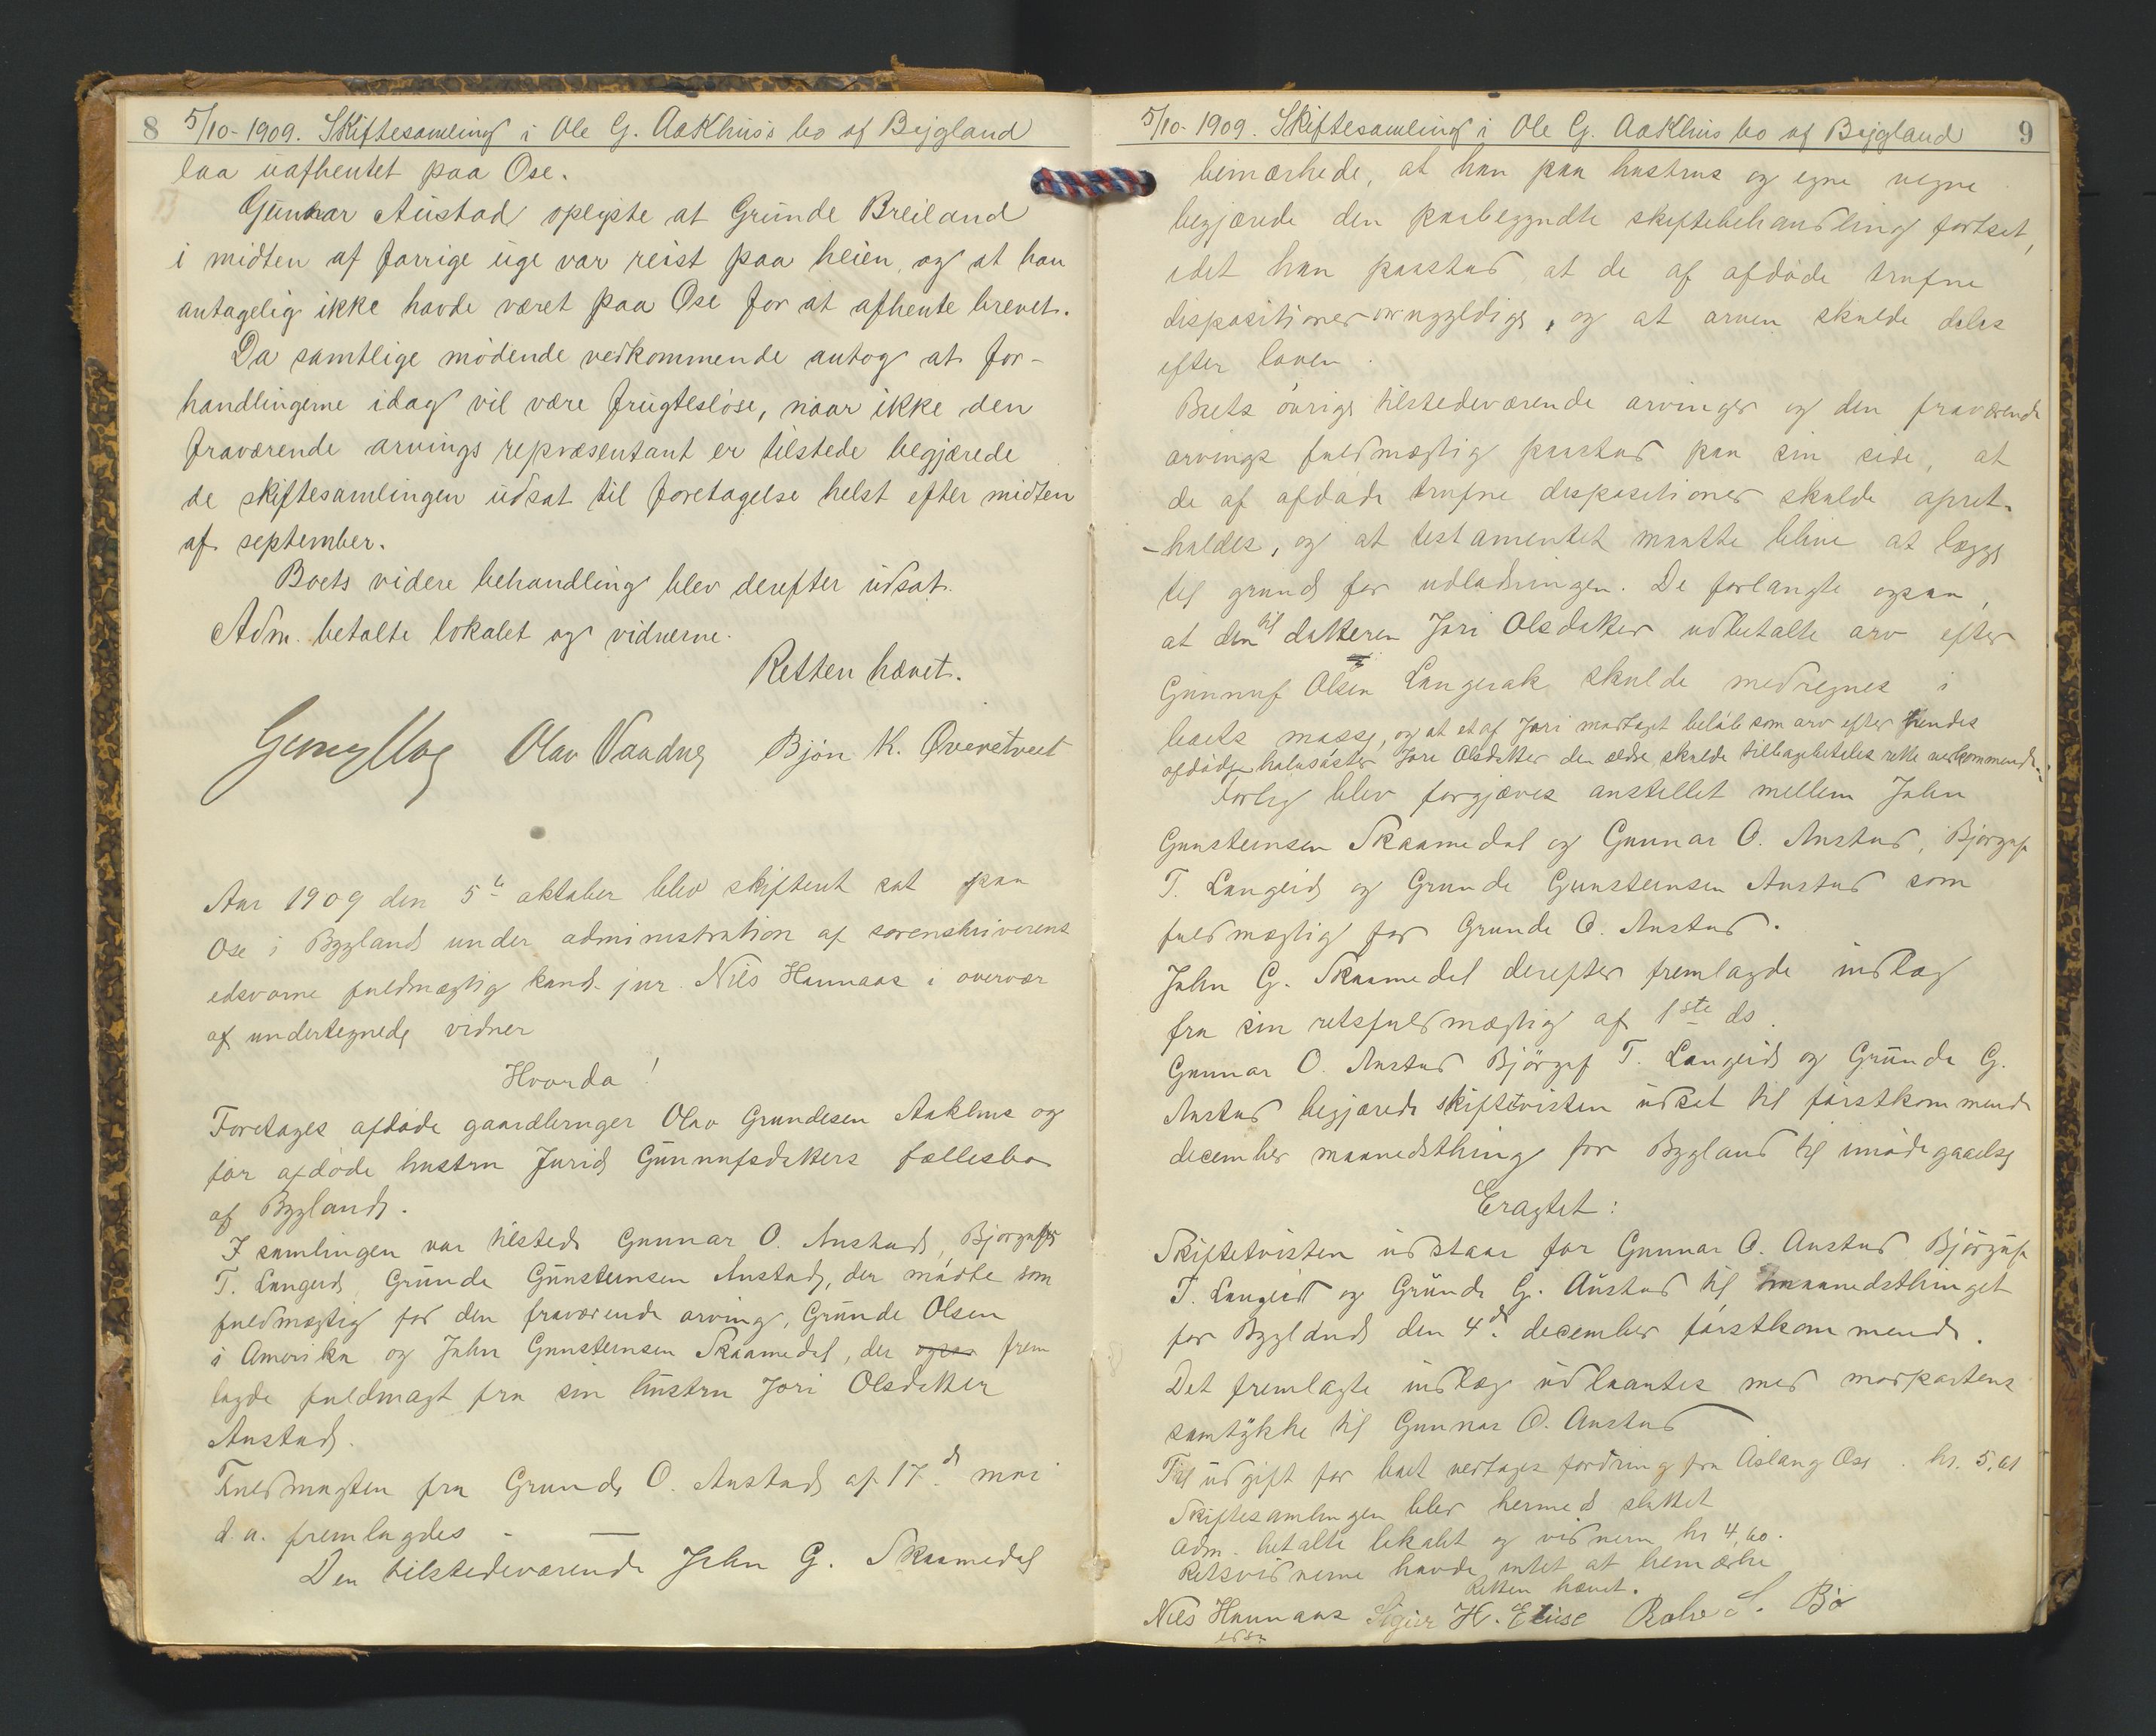 8 5/10-1909. Skiftesamling i Ole G. Aakhus's bo af Bygland
laa uafhentet paa Ose.
Gunnar Austad oplyste at Grunde Breiland
i midten af forrige uge var reist paa heien, og at han
antagelig ikke havde været paa Ose for at afhente brevet.
Da samtlige mødende vedkommende antog at for-
handlingerne idag vil være frugtesløse, naar ikke den
fraværende arvings repræsentant er tilstede begjærede
de skiftesamlingen udsat til foretagelse helst efter midten
af september.
Boets videre behandling blev derefter udsat.
Adm. betalte lokalet og vidnerne.
Retten hævet.
Olav Bjøn K. Øvretveit
Aar 1909 den 5te oktober blev skifteret sat paa
Ose i Bygland under administration af sorenskriverens
edsvorne fuldmægtig kand. jur. Nils Hannaas i overvær
af undertegnede vidner
Hvorda!
Foretages afdøde gaardbruger Olav Grundesen Aakhus og
før afdøde hustru Jurid Gunnufsdatters fællesbo
af Bygland.
I samlingen var tilstede Gunnar O. Austad, Bjørguf
T. Langeid, Grunde Gunsteinsen Austad, der mødte som
fuldmægtig for den fraværende arving, Grunde Olsen
i Amerika og John Gunsteinsen Skaamedal, der ogsaa frem
lagde fuldmagt fra sin hustru Jori Olsdatter
Austad.
Fuldmagten fra Grunde O. Austad af 17de mai
d.a. fremlagdes -
Den tilstedeværende John G. Skaamedal
5/10-1909. Skiftesamling i Ole G. Aakhus bo af Bygland 9
bemærkede, at han paa hustrus og egne vegne
begjærede den paabegyndte skiftebehandling fortsat,
idet han paastod at de af afdøde trufne
dispositioner er ugyldige, og at arven skulde deles
efter loven.
Boets øvrige tilstedeværende arvinger og den fraværende
arvings fuldmægtig paastod paa sin side, at
de af afdøde trufne dispositioner skulde opret-
-holdes, og at testamentet maatte blive at lægge
til grund for udlodningen. De forlangte ogsaa,
at den til datteren Jori Olsdatter udbetalte arv efter
Gunnuf Olsen Langerak skulde medregnes i
boets masse, og at et af Jori modtaget beløb som arv efter hendes
afdøde halvsøster Jore Olsdatter den ældre, skulde tilbagebetales rette vedkommende.
Forlig blev forgjæves anstillet mellem John
Gunsteinsen Skaamedal og Gunnar O. Austad, Bjørguf
T. Langeid og Grunde Gunsteinsen Austad som
fuldmægtig for Grunde O. Austad.
John G. Skaamedal derefter fremlagde indlæg
fra sin retsfuldmægtig af 1ste ds.
Gunnar O. Austad Bjørguf T. Langeid og Grunde G.
Austad begjærede skiftetvisten udsat til førstkommende
december maanedsthing for Bygland til imødegaaelse
Eragtet:
Skiftetvisten udstaar for Gunnar O. Austad Bjørguf
T. Langeid og Grunde G. Austad til maanedsthinget
for Bygland den 4de december førstkommende.
Det fremlagte indlæg udlaantes med modpartens
samtykke til Gunnar O. Austad
Til udgift for boet vedtages fordring fra Aslaug Ose kr. 5,61
Skiftesamlingen blev hermed sluttet
Adm. betalte lokalet og vidnerne kr 4,60.
Retsvidnerne havde intet at bemærke
Retten hævet.
Nils Hannaas H. S. Bø
edsv